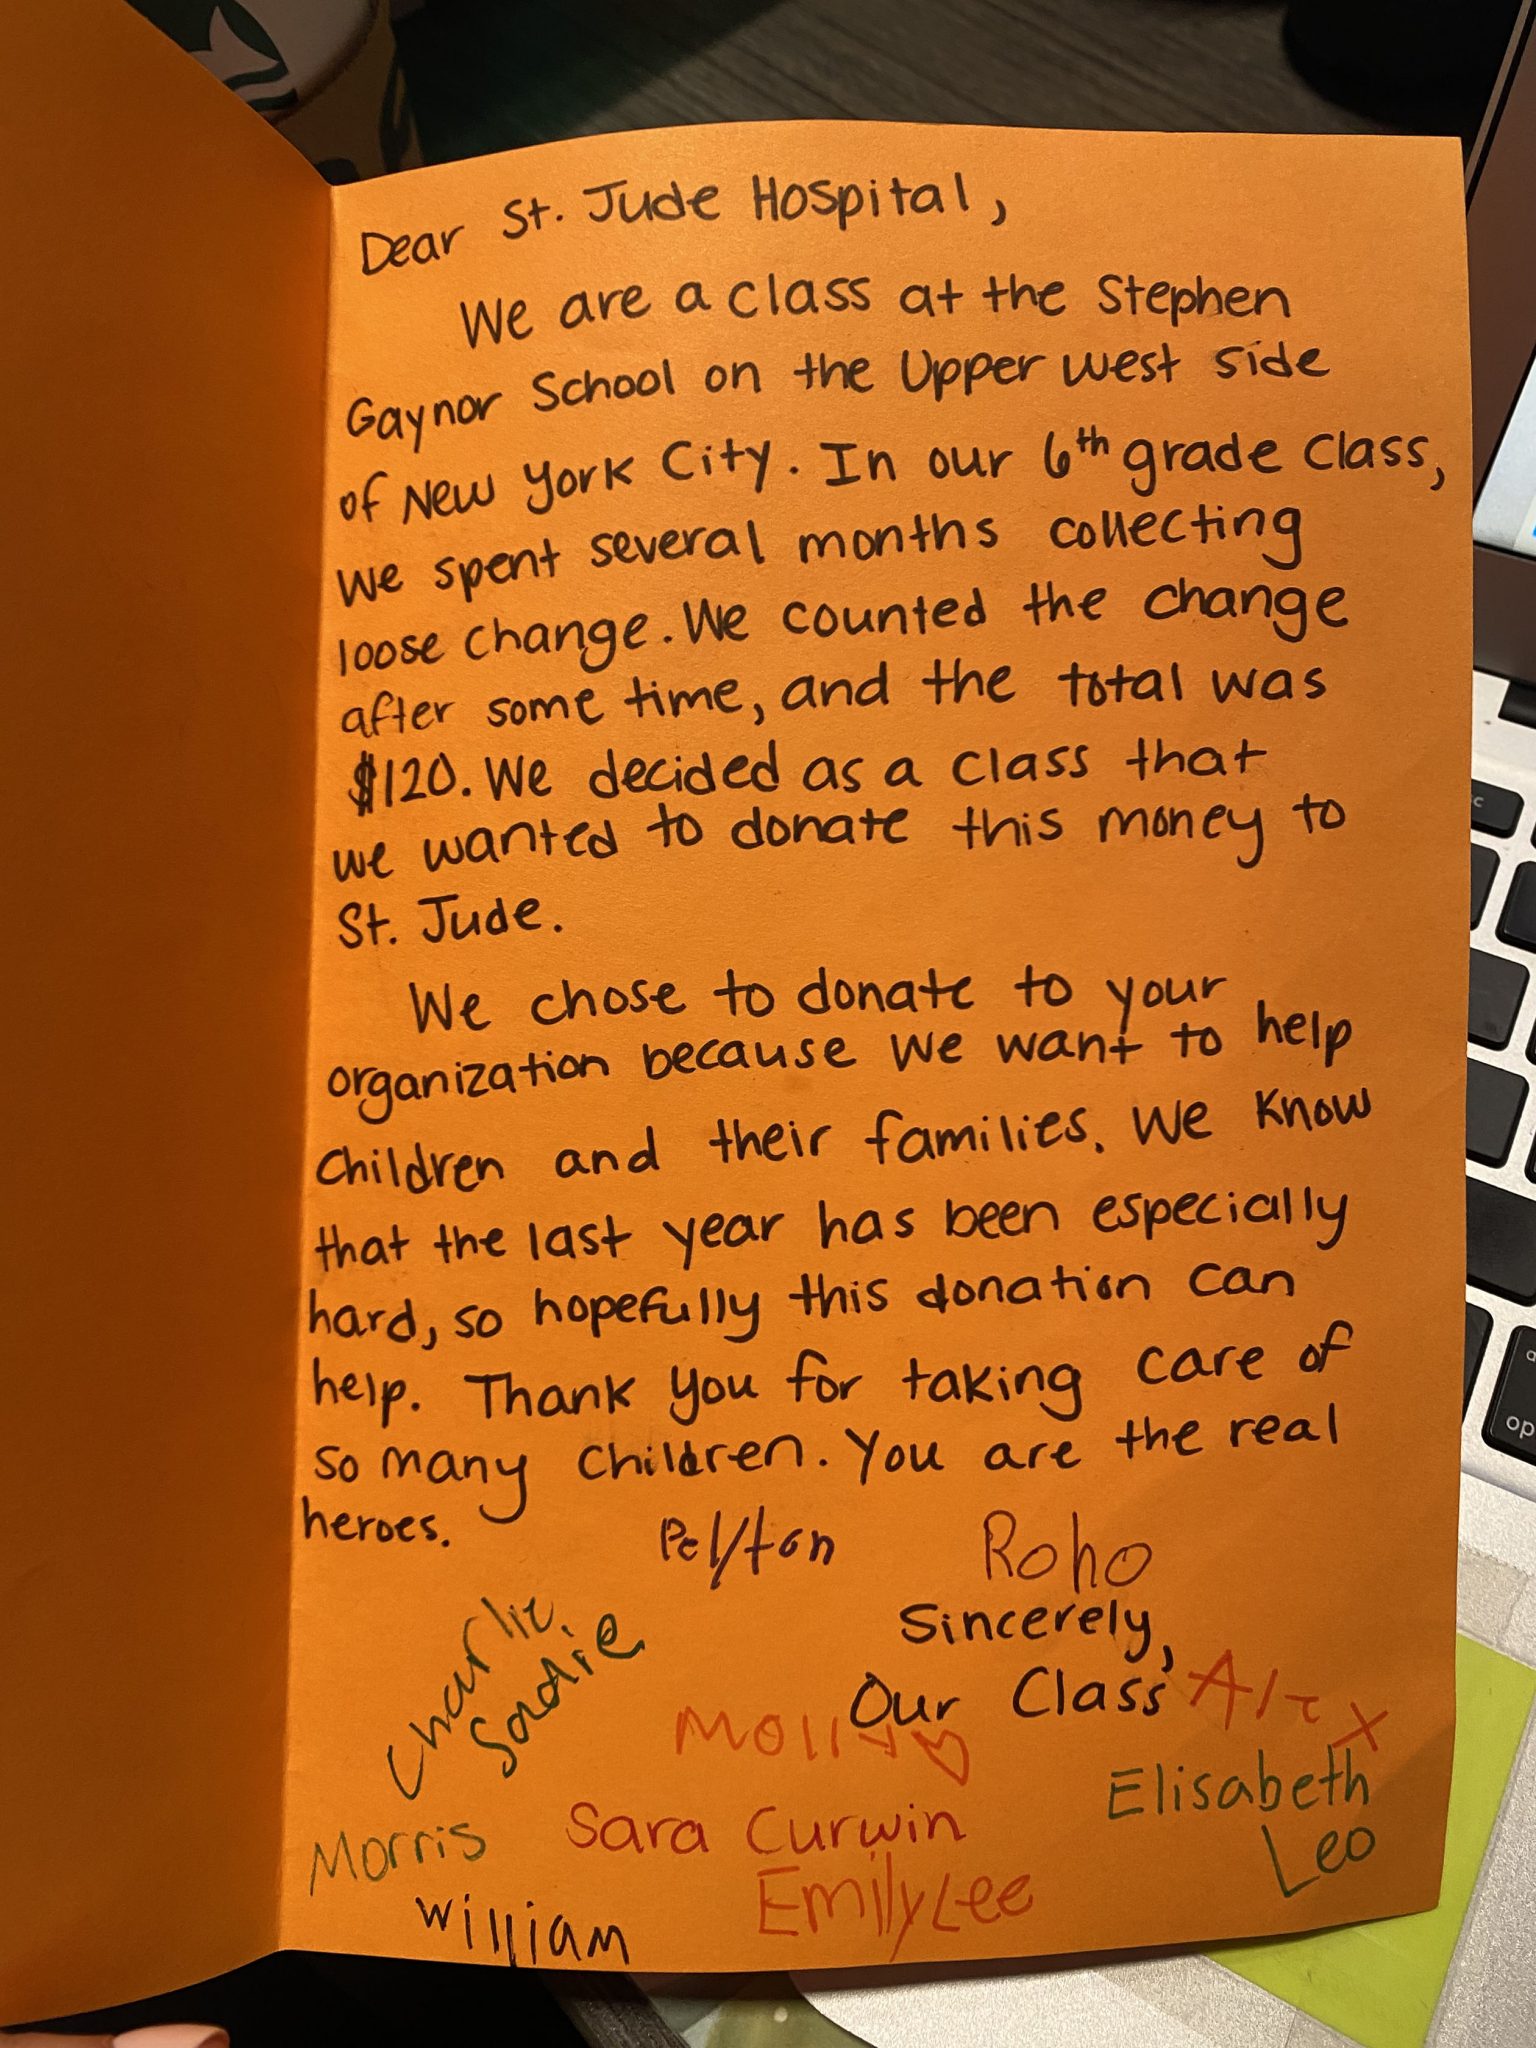 Dear St. Jude Hospital,
We are a class at the Stephen
Gaynor School on the Upper west side
of New York City. In our 6th grade class,
we spent several months collecting
loose change. We counted the change
after some time, and the total was
$120. We decided as a class that
we wanted to donate this money to
St. Jude.
We chose to donate to your
organization because we want to help
children and their families. We know
that the last year has been especially
hard, so hopefully this donation can
help. Thank you for taking care of
so many children. You are the real
heroes.
Peyton Roho
Sincerely,
Our Class
Charlie
Sadie
Molly
Alex
Elisabeth
Morris
Sara Curwin
Leo
William
Emily Lee
op